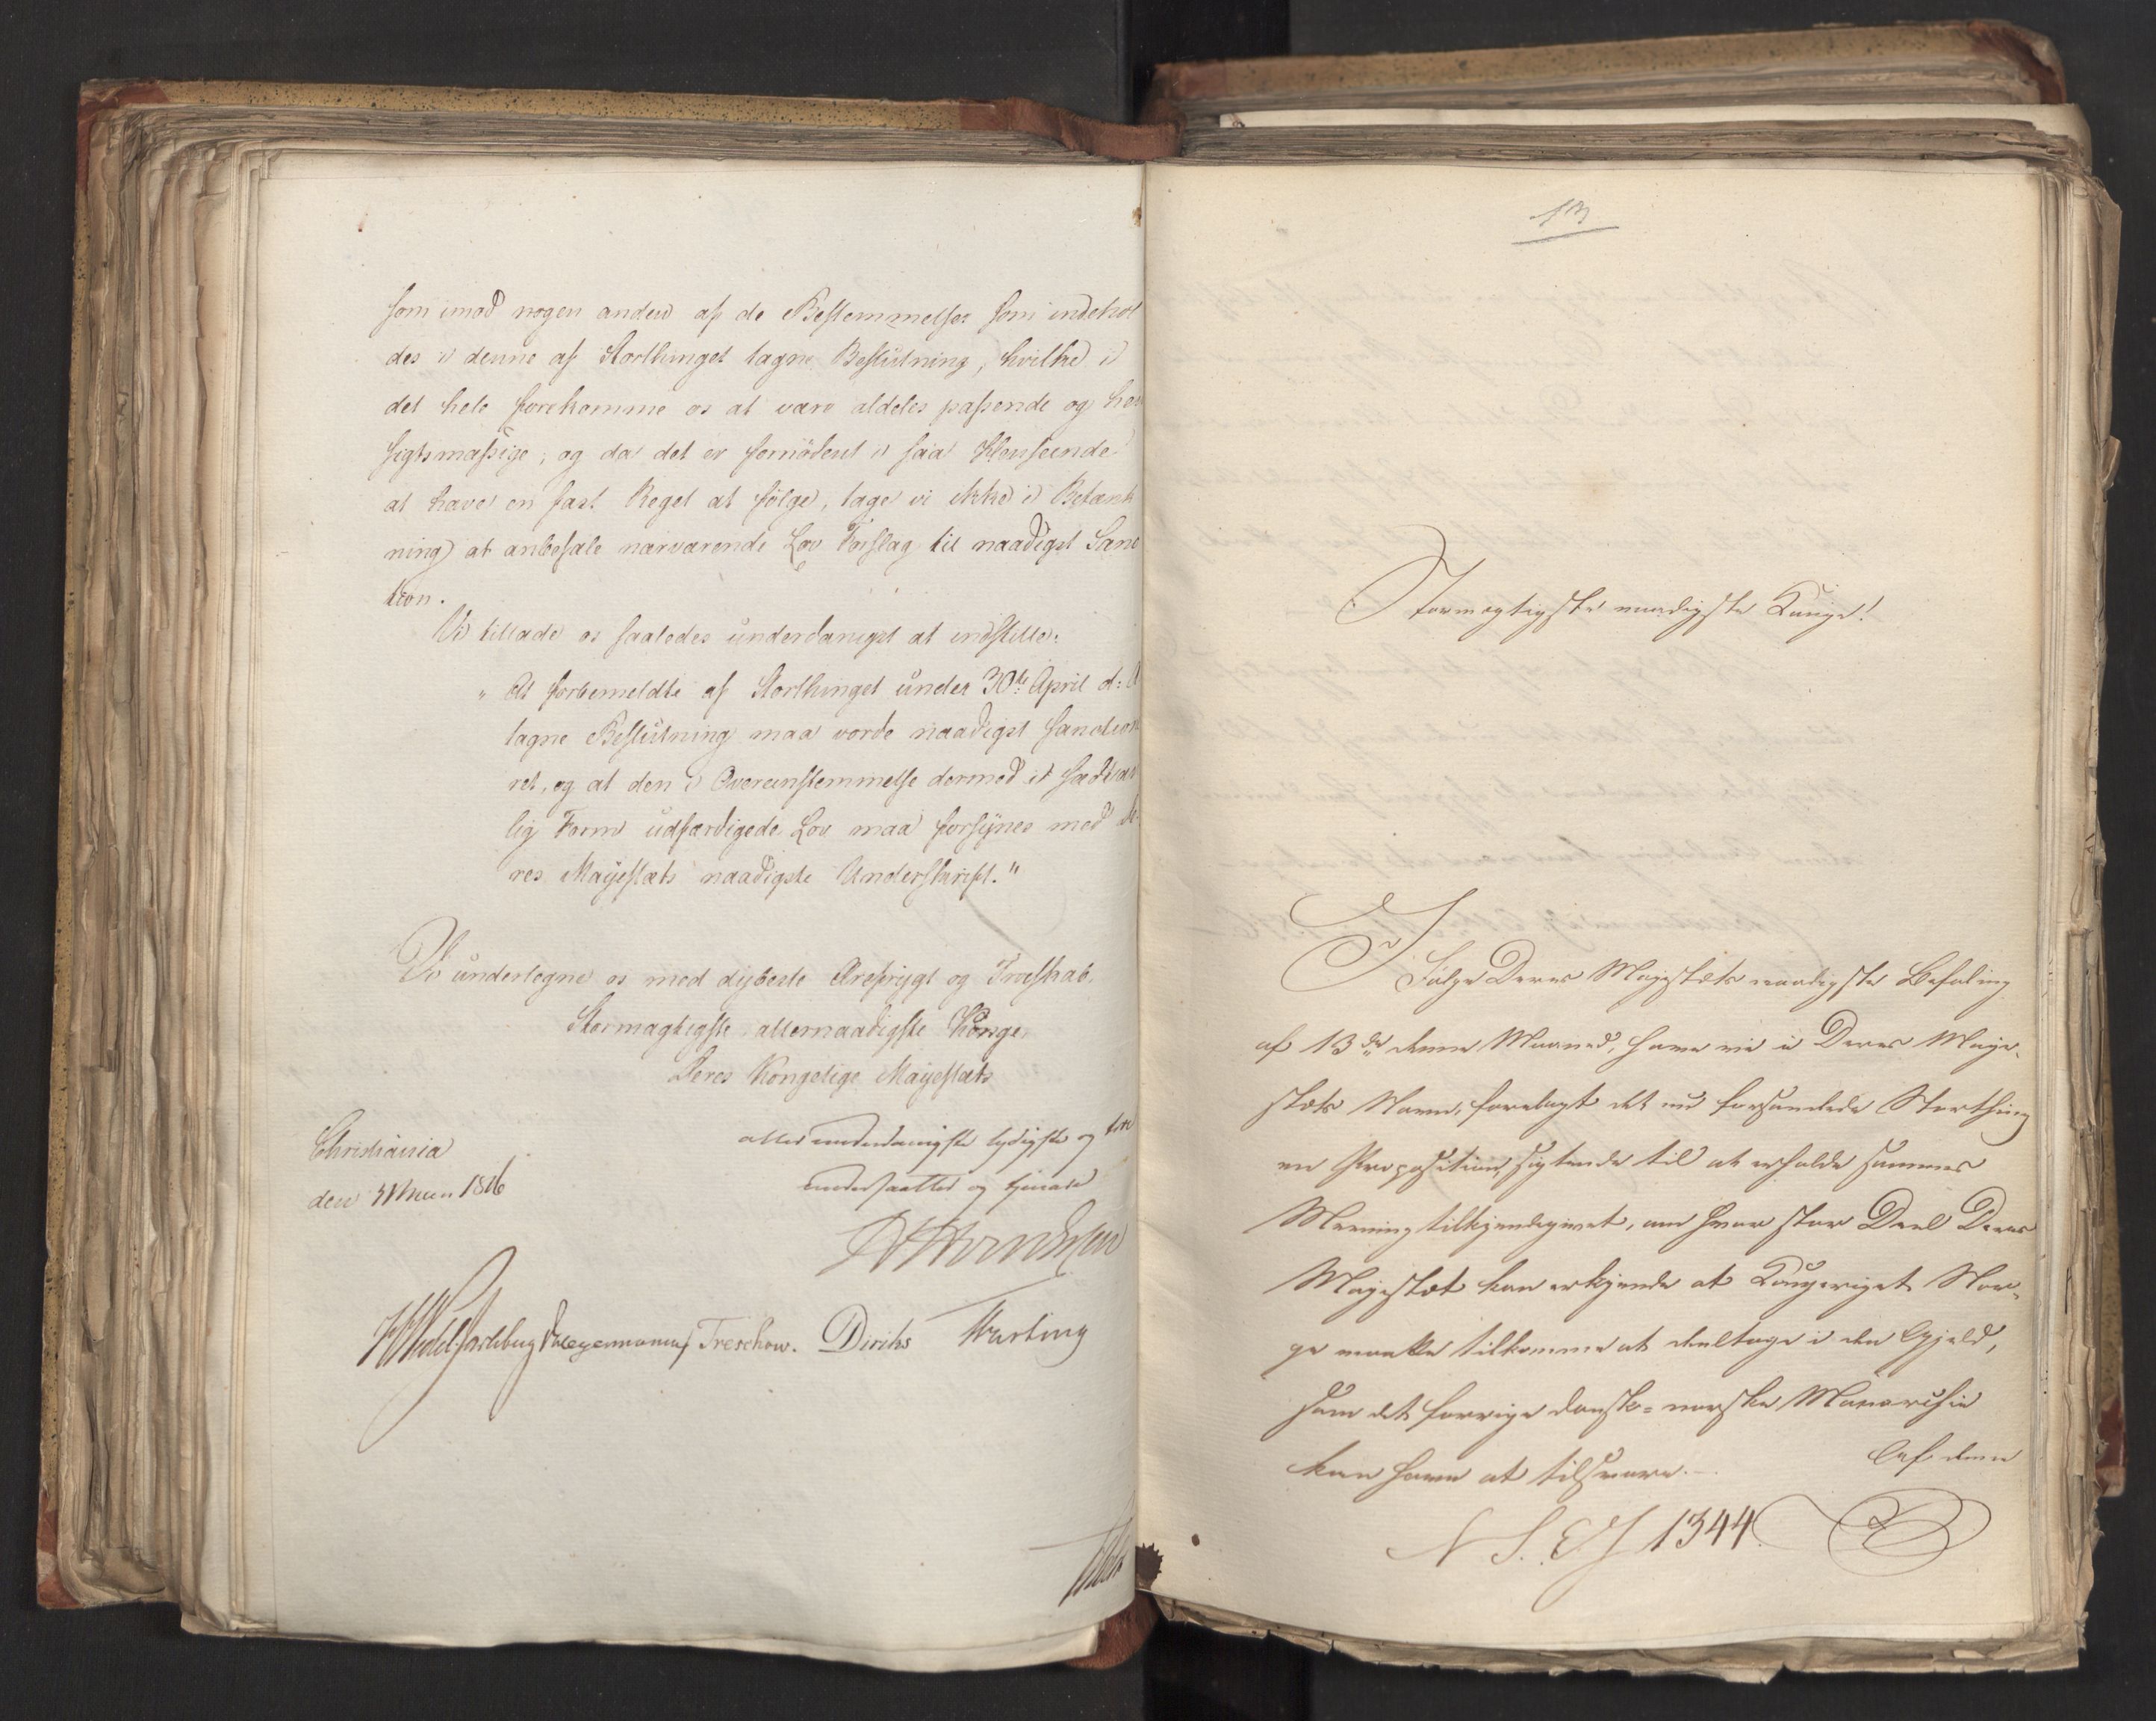 som imod nogen anden af de Bestemmelser som indehol
des i denne af Storthinget tagne Beslutning, hvilke i
det hele forekomme os at være aldeles passende og hen
sigtsmæssige; og da det er fornödent i saa Henseende
at have en fast Regel at fölge, tage vi ikke i Betænk
ning at anbefale nærværende Lov Forslag til naadigst Sanc
tion.
Vi tillade os saaledes underdanigst at indstille:
"At forbemeldte af Storthinget under 30te April d: A
tagne Beslutning maa vorde naadigst sanction
ret, og at den i Overeensstemmelse dermed i sædvan
lig Form udfærdigede Lov maa forsÿnes med De
res Mayestæts naadigste Underskrift."
Vi undertegne os med dybeste Ærefrygt og Troeskab,
Stormægtigste allernaadigste Konge
Deres Kongelige Mayestæts
Christiania
den 31 Mai 1816
allerunderdanigste lydigste og troe
undersaatter og tjenere
Wedel Jarlsberg Hegermann Treschow. Diriks
13
Stormægtigste naadigste Konge!
I Følge Deres Majestæts naadigste Befaling
af 13de denne Maaned, have vi i Deres Maje-
stæts Navn, forelagt det nu forsamlede Storthing
en Proposition, sigtende til at erholde sammes
Mening tilkjendegivet, om hvor stor Deel Deres
Majestæt kan erkjende at Kongeriget Nor-
ge maatte tilkomme at deeltage i den Gjeld,
som det forrige dansk-norske Monarchie
kan have at tilsvare.-
Af den
1344